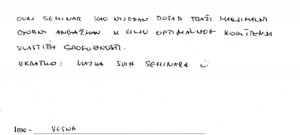 OVAJ SEMINAR KAO NIJEDAN DOSAD TRAŽI MAKSIMALNI
OSOBNI ANGAŽMAN U CILJU OPTIMALNOG KORIŠTENJA
VLASTITIH SPOSOBNOSTI.
UKRATKO: MAJKA SVIH SEMINARA
Ime - VESNA